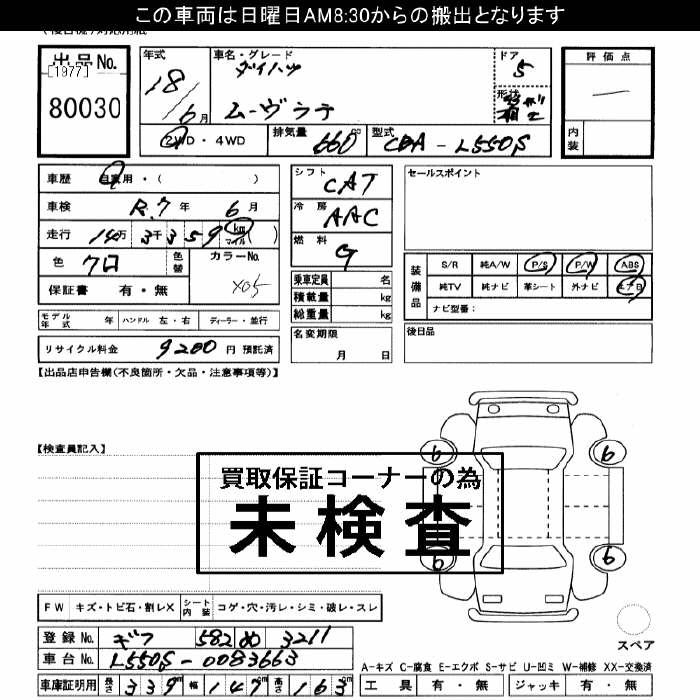 この車両は日曜日AM8:30からの搬出となります
出品No.
[1977]
80030
年式
18/6月
車名・グレード
ダイハツ
ムーヴラテ
ドア
5
形状
評価点
内装
2WD・4WD
排気量
660
cc
型式
CBA-L550S
車歴
自家用・( )
車検
R.7年 6月
走行
14万3千359 km マイル( )
色
クロ
色替
カラーNo.
X05
保証書 有・無
モデル年式 年
ハンドル 左・右
ディーラー・並行
リサイクル料金 9200円 預託済
シフト
CAT
冷房
AAC
燃料
G
乗車定員 名
積載量 kg
総重量 kg
名変期限
月 日
セールスポイント
装備品
S/R 純A/W P/S P/W ABS
純TV 純ナビ 革シート 外ナビ エアB
ナビ型番:
後日品
【出品店申告欄(不良箇所・欠品・注意事項等)】
【検査員記入】
買取保証コーナーの為
未検査
6
6
6
6
FW キズ・トビ石・割レX
シート内装 コゲ・穴・汚レ・シミ・破レ・スレ
スペア
登録No. ギフ 582 め 3211
車台No. L550S-0083663
車庫証明用 長さ 339cm 幅 147cm 高さ 163cm
A-キズ C-腐食 E-エクボ S-サビ U-凹ミ W-補修 XX-交換済
工具 有・無 ジャッキ 有・無